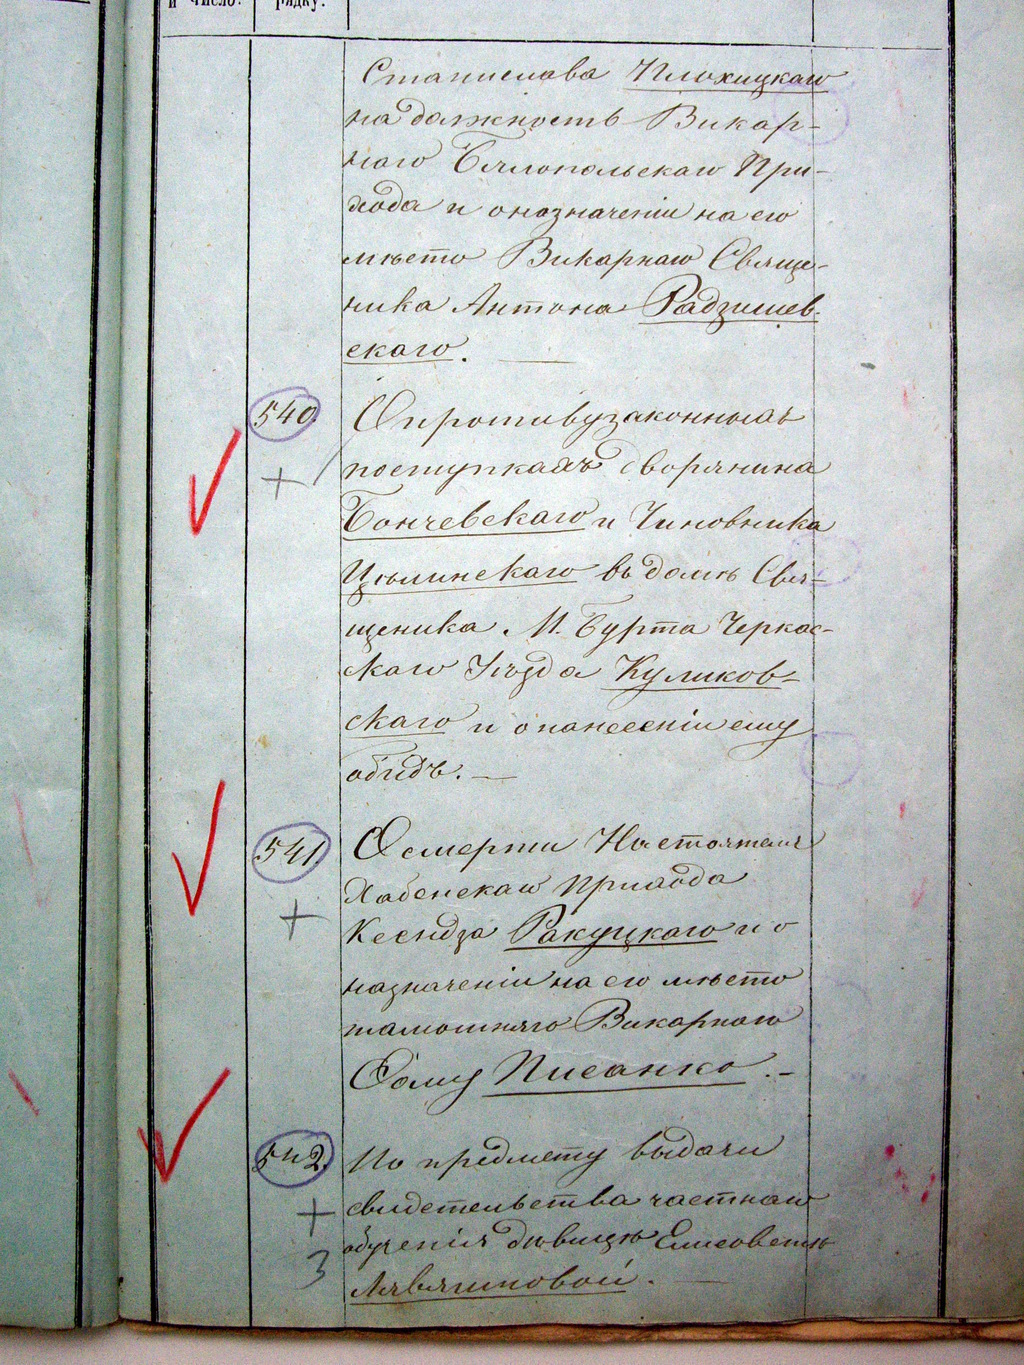 и число.
рядку.
Станислава Плохицкаго
на должность Викар-
наго Бялопольскаго При-
хода и о назначеніи на его
мѣсто Викарнаго Свяще-
ника Антона Радзишев-
скаго. —
540. О противузаконныхъ
поступкахъ дворянина
Бончевскаго и Чиновника
Цѣлинскаго въ домѣ Свя-
щеника М. Бурта Черкас-
скаго Уѣзда Куликов-
скаго и о нанесеніи ему
обидъ. —
541. О смерти Настоятеля
Хабенскаго Прихода
Ксендза Ракуцкаго и о
назначеніи на его мѣсто
тамошняго Викарнаго
Фому Писанко. —
542. По предмету выдачи
свидетельства частнаго
3 обученія дѣвицѣ Елисоветѣ
Лявляниковой. —